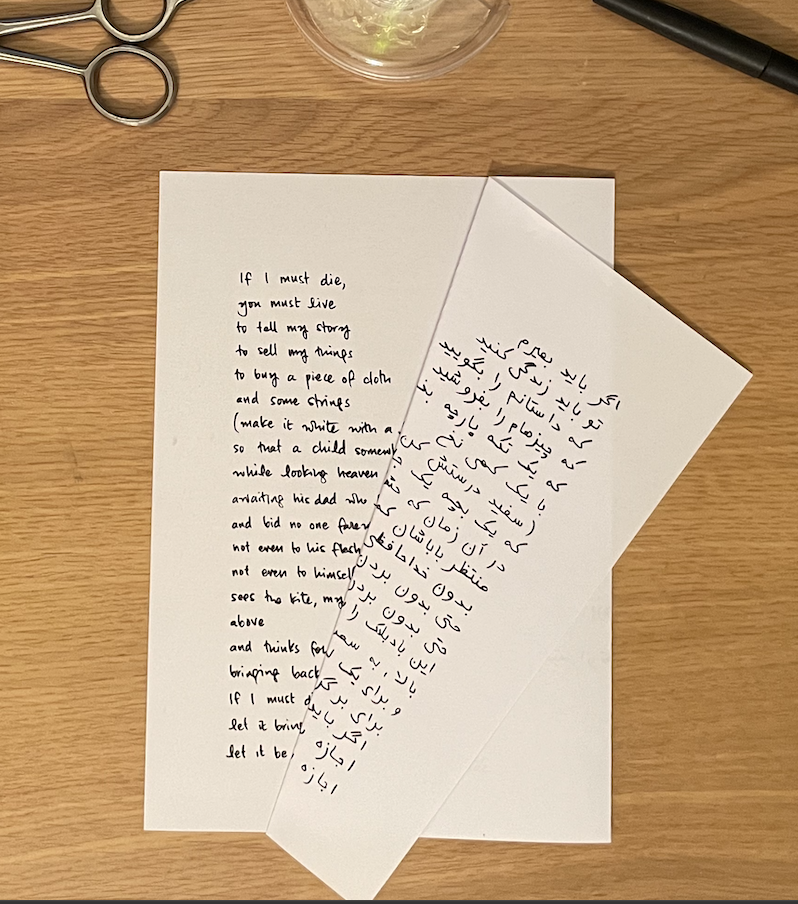 If I must die,
you must live
to tell my story
to sell my things
to buy a piece of cloth
and some strings
(make it white with a
so that a child
while looking heaven
awaiting his dad who
and bid no one
not even to his flesh
not even to himself
sees the kite, my
above
and thinks for
bringing back
If I must
let it bring
let it be
اگر باید بمیرم
تو باید زندگی کنید
که داستانم را بگویید
که چیزهام را بفروشید
که یک تکه پارچه
با یک کمی نخ
(سفید درستش کن
که یک بچه یک
در آن زمان که
منتظر باباشان که
بدون خداحافظی
حتی بدون بردن
حتی بدون بردن
این بادبادک را
بالا، به سمت
و برای یک
برای برگر
اگر باید
اجازه
اجازه